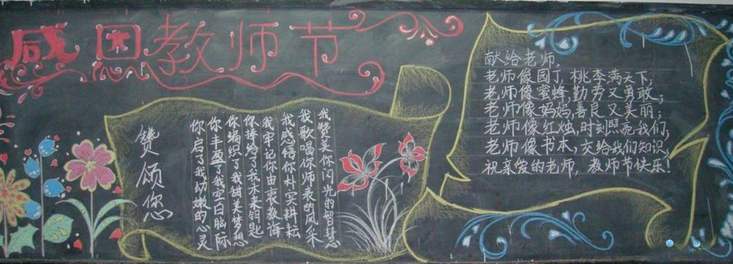 感恩教师节
赞颂您
你启了我幼嫩的心灵
你丰盈了我空白脑际
你编织了我甜美梦想
你捧给了我未来钥匙
我牢记你由衷教诲
我感悟你朴实耕耘
我歌唱你师表的风采
我赞美你闪光的智慧
献给老师,
老师像园丁,桃李满天下;
老师像蜜蜂,勤劳又勇敢;
老师像妈妈,善良又美丽;
老师像红烛,时刻照亮我们;
老师像书本,交给我们知识,
祝亲爱的老师,教师节快乐!